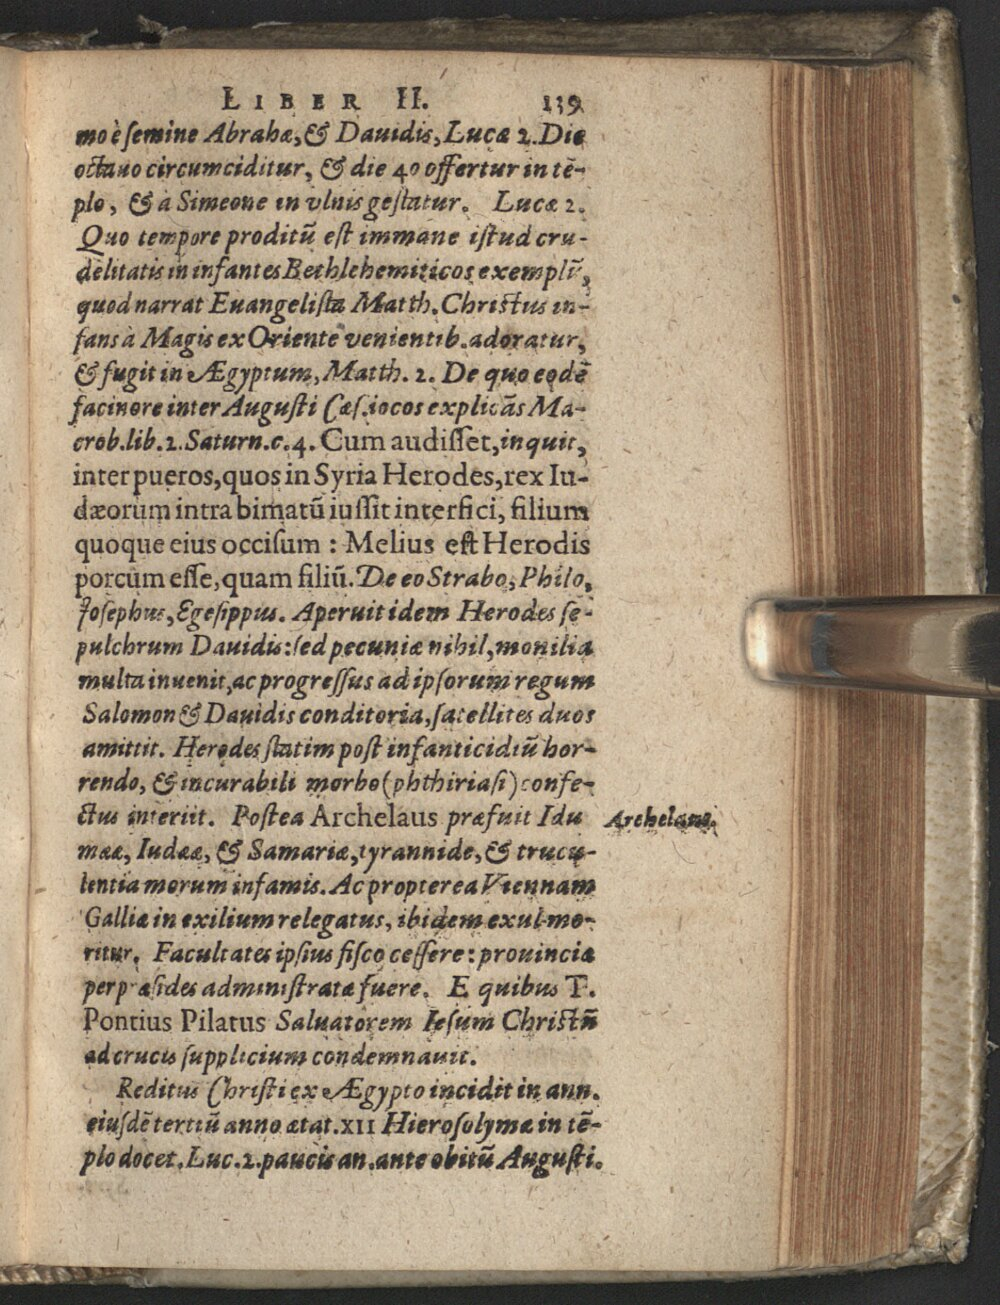 LIBER II. 139
mo è semine Abrahæ, & Dauidis, Lucæ 2. Die
octauo circumciditur, & die 40 offertur in tē-
plo, & à Simeone in vlnis gestatur. Lucæ 2.
Quo tempore proditū est immane istud cru-
delitatis in infantes Bethlehemiticos exemplū,
quod narrat Euangelista Matth. Christus in-
fans à Magis ex Oriente venientib. adoratur,
& fugit in Ægyptum, Matth. 2. De quo eodē
facinore inter Augusti Cæs. iocos explicās Ma-
crob. lib. 2. Saturn. c. 4. Cum audisset, inquit,
inter pueros, quos in Syria Herodes, rex Iu-
dæorum intra bimatū iussit interfici, filium
quoque eius occisum : Melius est Herodis
porcum esse, quam filiū. De eo Strabo, Philo,
Iosephus, Egesippus. Aperuit idem Herodes se-
pulchrum Dauidis: sed pecuniæ nihil, monilia
multa inuenit, ac progressus ad ipsorum regum
Salomon & Dauidis conditoria, satellites duos
amittit. Herodes statim post infanticidiū hor-
rendo, & incurabili morbo (phthiriasi) confe-
ctus interiit. Postea Archelaus præfuit Idu
mææ, Iudææ, & Samariæ, tyrannide, & trucu-
lentia morum infamis. Ac propterea Viennam
Galliæ in exilium relegatus, ibidem exul mo-
ritur. Facultates ipsius fisco cessere: prouincia
per præsides administrata fuere. E quibus T.
Pontius Pilatus Saluatorem Iesum Christū
ad crucis supplicium condemnauit.
Reditus Christi ex Ægypto incidit in ann.
eiusdē tertiū anno ætat. XII Hierosolymæ in tē-
plo docet, Luc. 2. paucis an. ante obitū Augusti.
Archelaus.